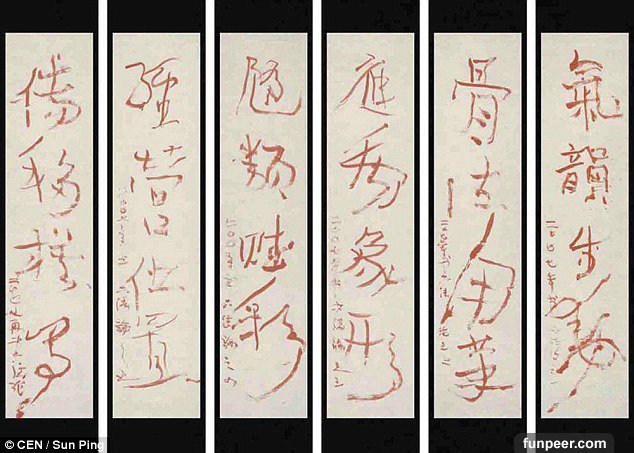 氣韻生動
二〇〇七年
骨法用筆
應物象形
隨類賦彩
經營位置
傳移模寫
© CEN / Sun Ping
funpeer.com